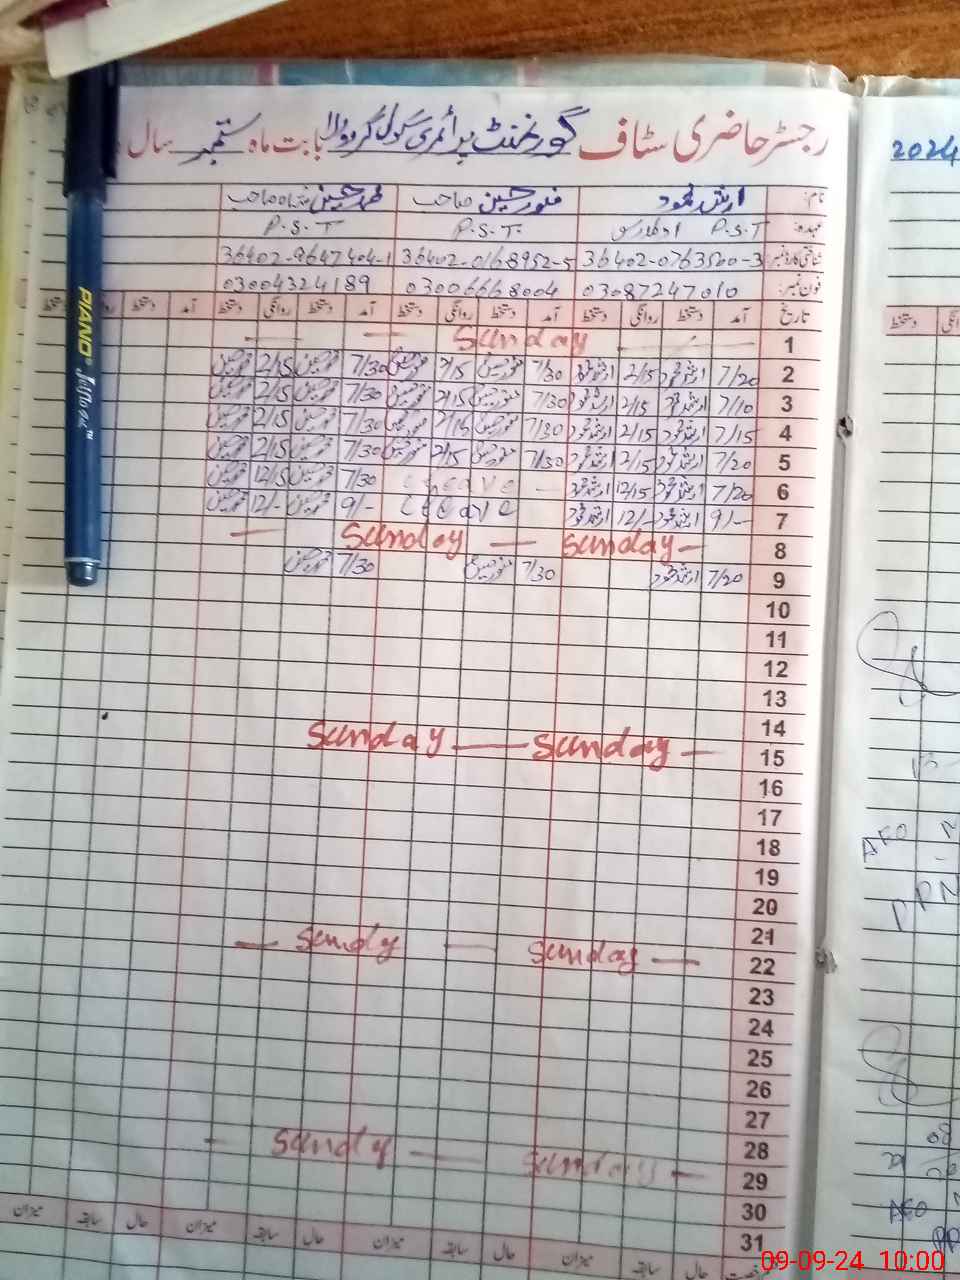 رجسٹر حاضری سٹاف گورنمنٹ پرائمری سکول گروالا بابت ماہ ستمبر سال
2024
نام: ارشد محمود منور حسین صاحب محمد حسین شاہ صاحب
عہدہ: P.S.T P.S.T. P.S.T
شناختی کارڈ نمبر 36402-0763500-3 36402-0168952-5 36402-9647404-1
فون نمبر: 03087247010 03006668004 03004324189
تاریخ آمد دستخط روانگی دستخط آمد دستخط روانگی دستخط آمد دستخط روانگی دستخط آمد دستخط
1 Sunday
2 7/20 ارشد محمود 2/15 ارشد محمود 7/30 منور حسین 2/15 منور حسین 7/30 محمد حسین 2/15 محمد حسین
3 7/10 ارشد محمود 2/15 ارشد محمود 7/30 منور حسین 2/15 منور حسین 7/30 محمد حسین 2/15 محمد حسین
4 7/15 ارشد محمود 2/15 ارشد محمود 7/30 منور حسین 2/15 منور حسین 7/30 محمد حسین 2/15 محمد حسین
5 7/20 ارشد محمود 2/15 ارشد محمود 7/30 منور حسین 2/15 منور حسین 7/30 محمد حسین 2/15 محمد حسین
6 7/20 ارشد محمود 12/15 ارشد محمود — Leave 7/30 محمد حسین 12/15 محمد حسین
7 9/- ارشد محمود 12/- ارشد محمود Leave 9/- محمد حسین 12/- محمد حسین
8 Sunday — Sunday —
9 7/20 ارشد محمود 7/30 منور حسین 7/30 محمد حسین
10
11
12
13
14
15 Sunday — Sunday —
16
17
18
19
20
21
22 — Sundy — Sunday —
23
24
25
26
27
28
29 - Sunday — Sunday -
30
31
حال سابقہ میزان حال سابقہ میزان حال سابقہ میزان حال سابقہ میزان
PIANO
AEO
AEO
09-09-24 10:00